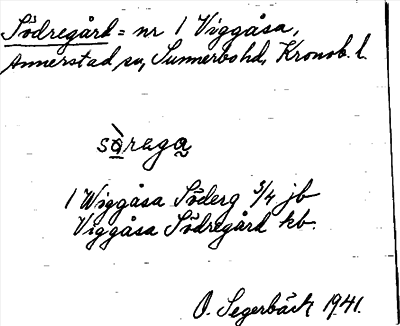 Södregård = nr 1 Viggåsa,
Annerstad sn, Sunnerbo hd, Kronob. l.
sòrega
1 Wiggåsa Söderg 3/4 jb
Viggåsa Södregård kb.
O. Segerbäck 1941.